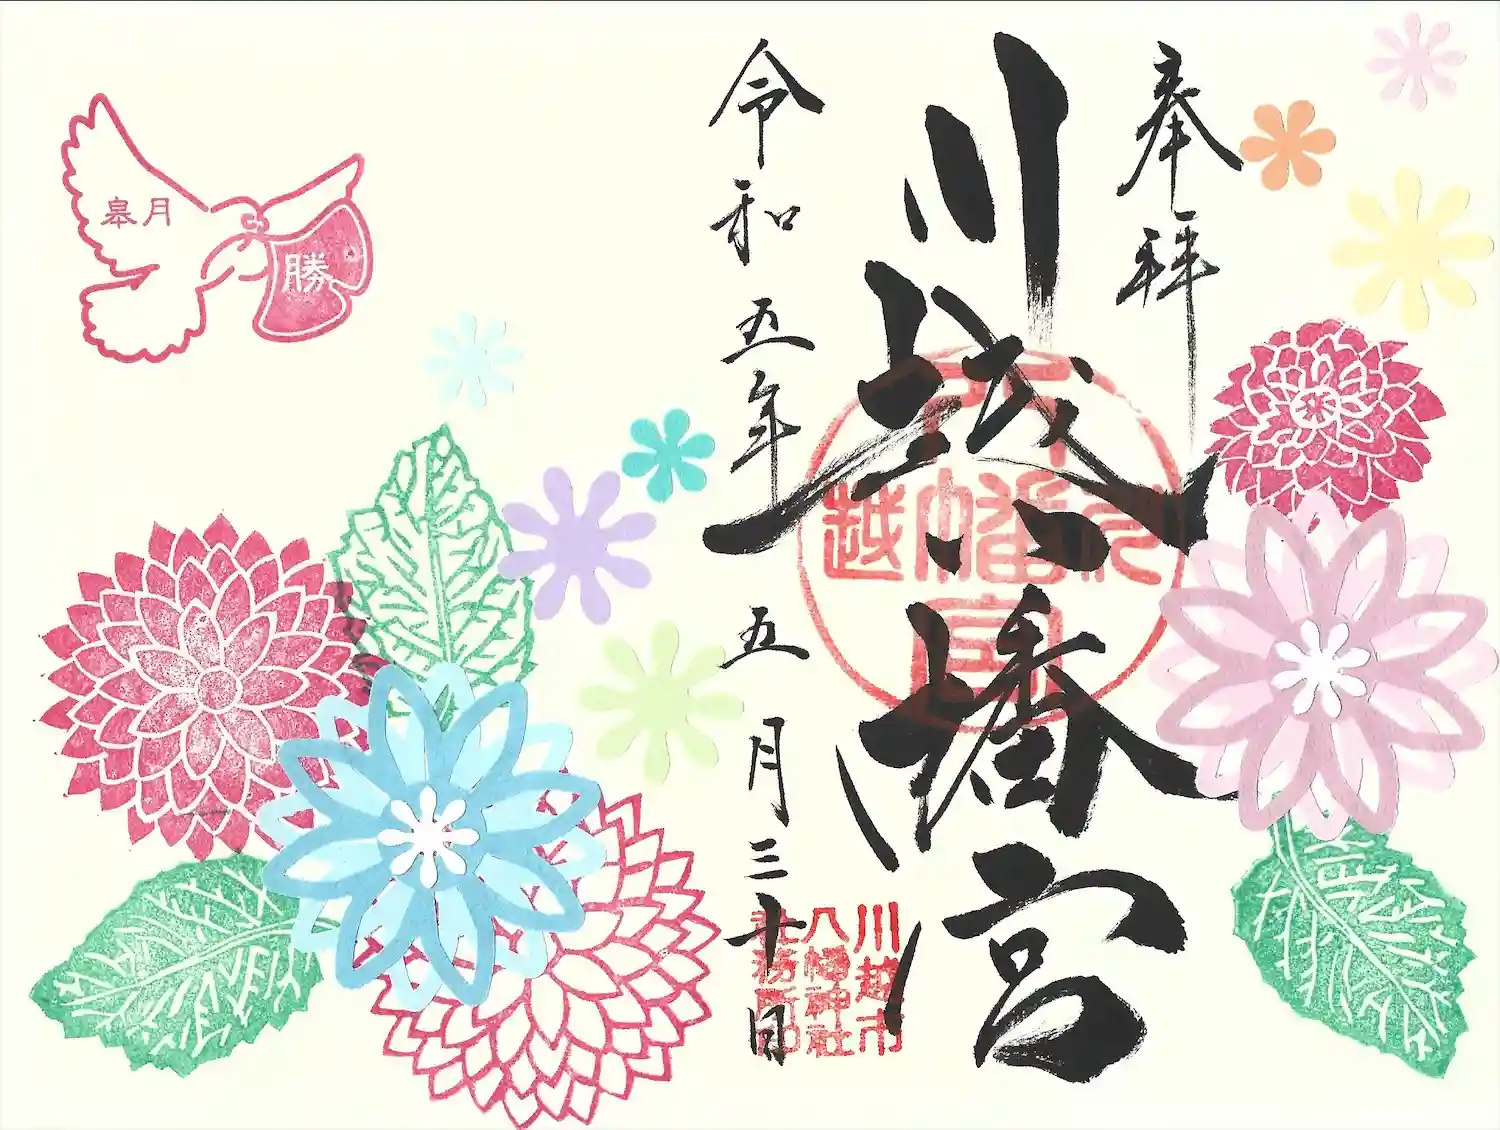 奉拝
川越八幡宮
令和五年五月三十日
川越市
八幡神社
社務所印
皐月
勝